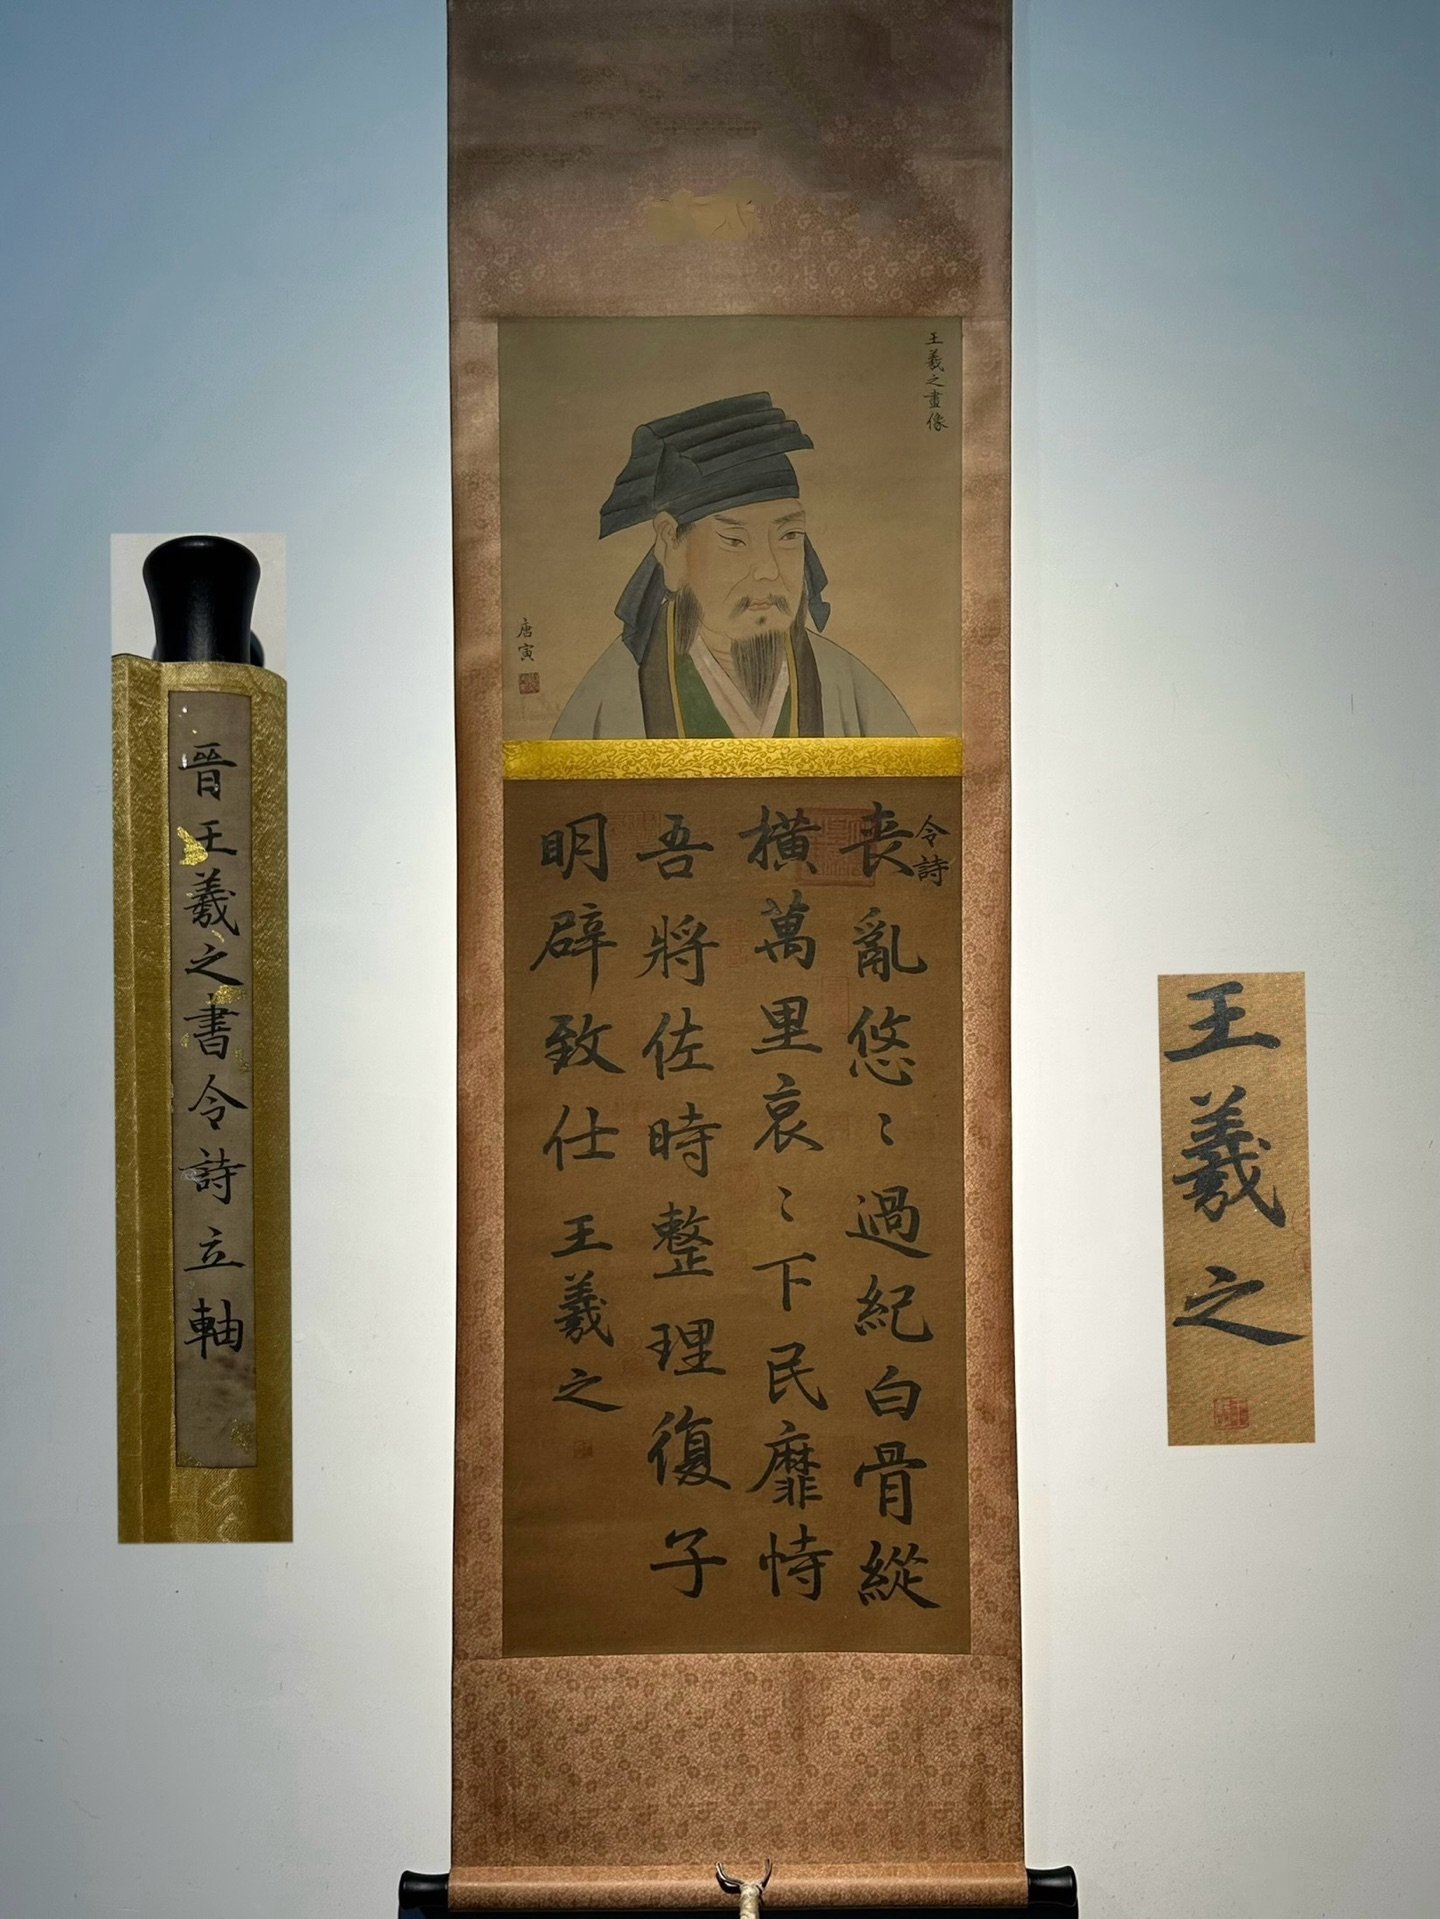 王羲之畫像
唐寅
令詩
喪亂悠〻過紀白骨縱
橫萬里哀〻下民靡恃
吾將佐時整理復子
明辟致仕
王羲之
晉王羲之書令詩立軸
王羲之